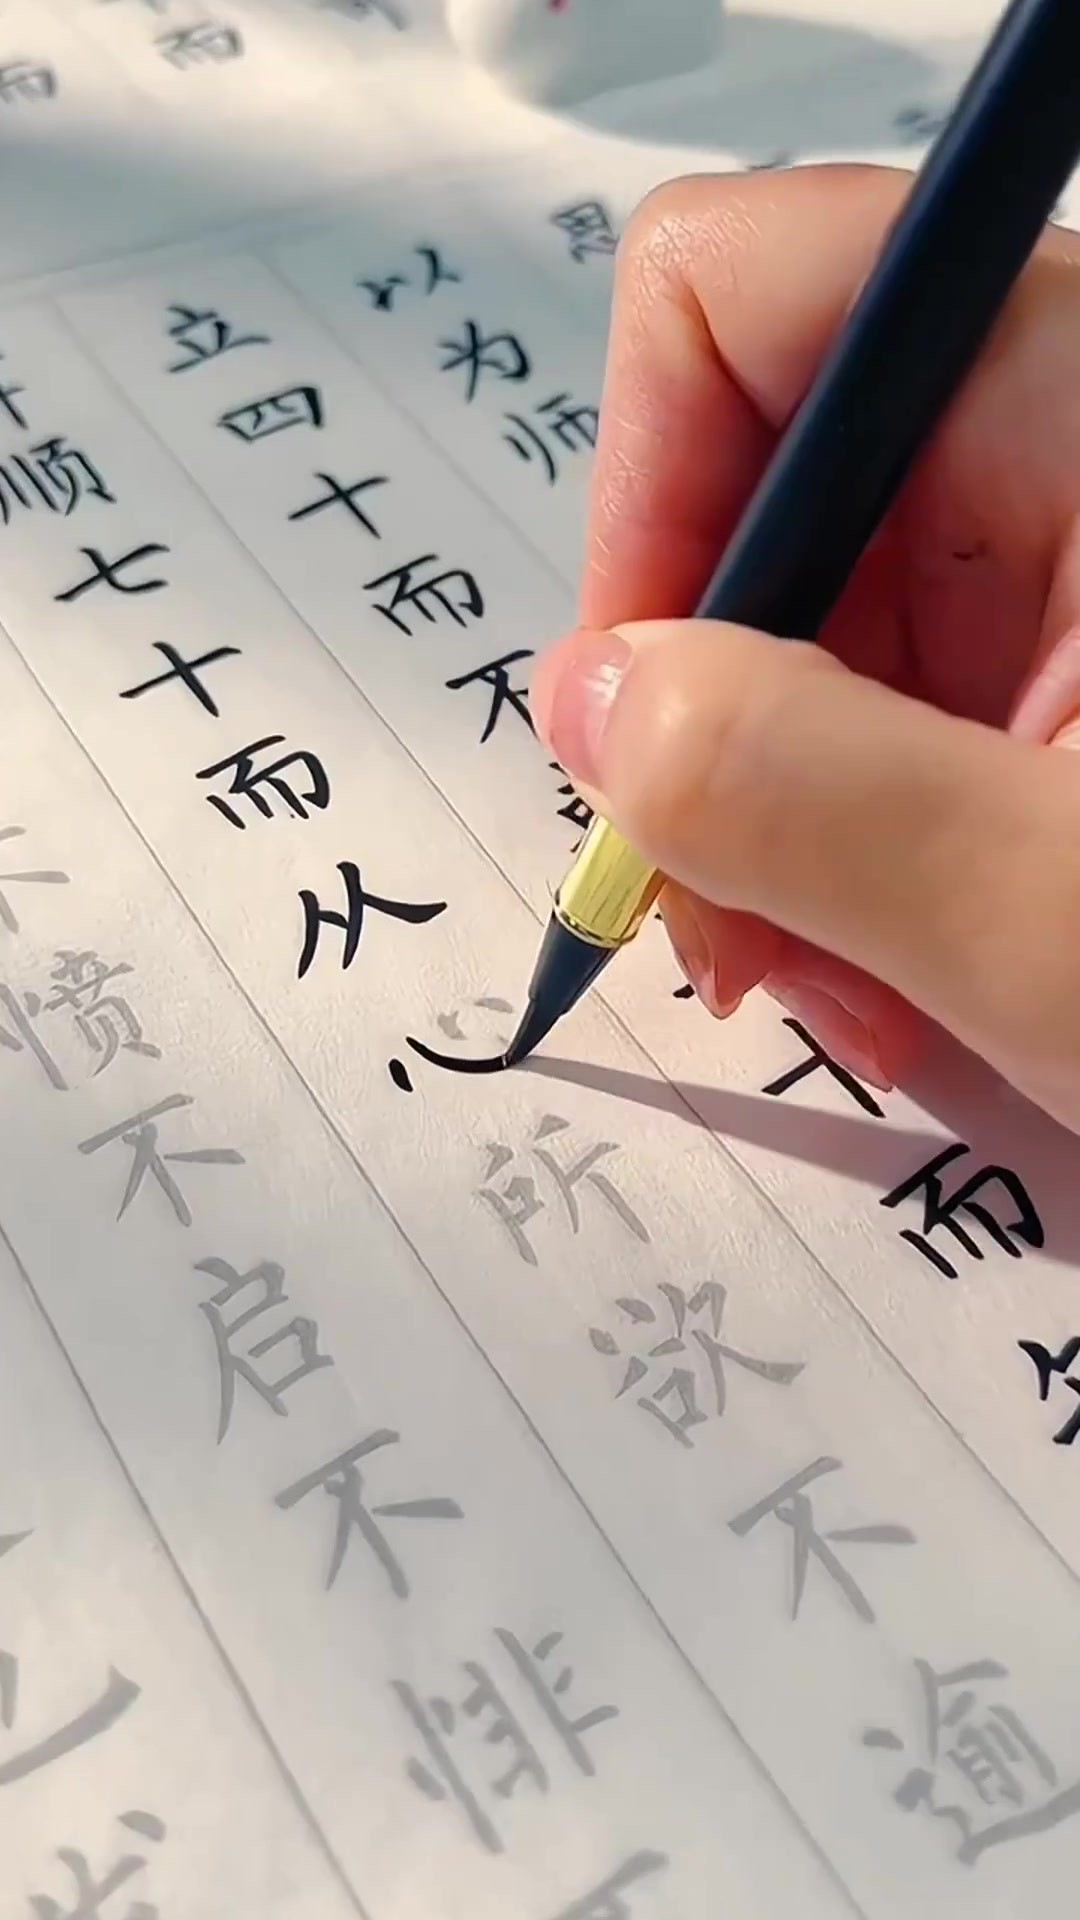 思
以为师
立四十而不十而
顺七十而从心所欲不逾
不愤不启不悱